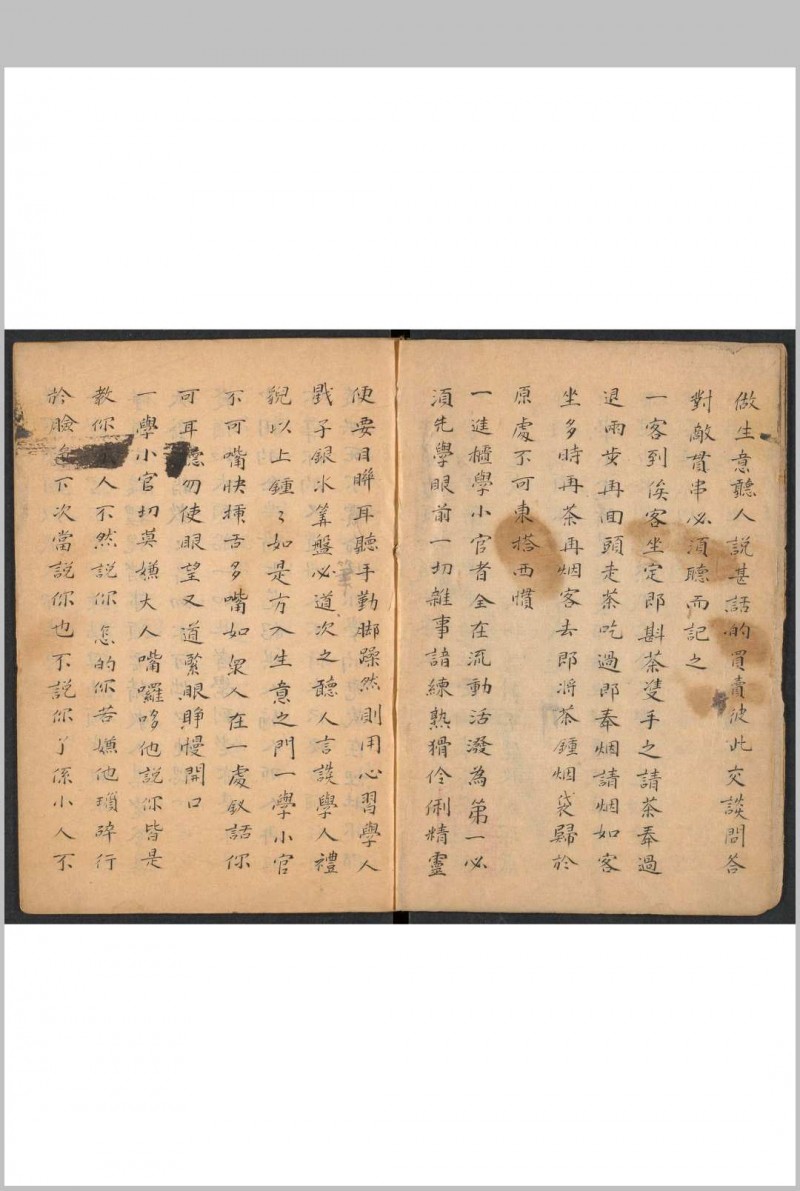 做生意聽人說甚話的買賣彼此交談問答
對敵貫串必須聽而記之
一客到俟客坐定即斟茶雙手之請茶奉過
退兩步再回頭走茶吃過即奉烟請烟如客
坐多時再茶再烟客去即將茶鍾烟袋歸於
原處不可東搭西慣
一進櫃學小官者全在流動活潑為第一必
須先學眼前一切雜事諳練熟猾伶俐精靈
便要目聨耳聽手勤脚躁然則用心習學人
戥子銀水筭盤必道次之聽人言談學人禮
貌以上鍾〻如是方入生意之門一學小官
不可嘴快揷舌多嘴如衆人在一處敘話你
可耳聽勿使眼望又道緊眼睜慢開口
一學小官切莫嫌大人嘴囉哆他說你皆是
教你人不然說你怎的你若嫌他瑣碎行
於臉色下次當說你也不說你了係小人不